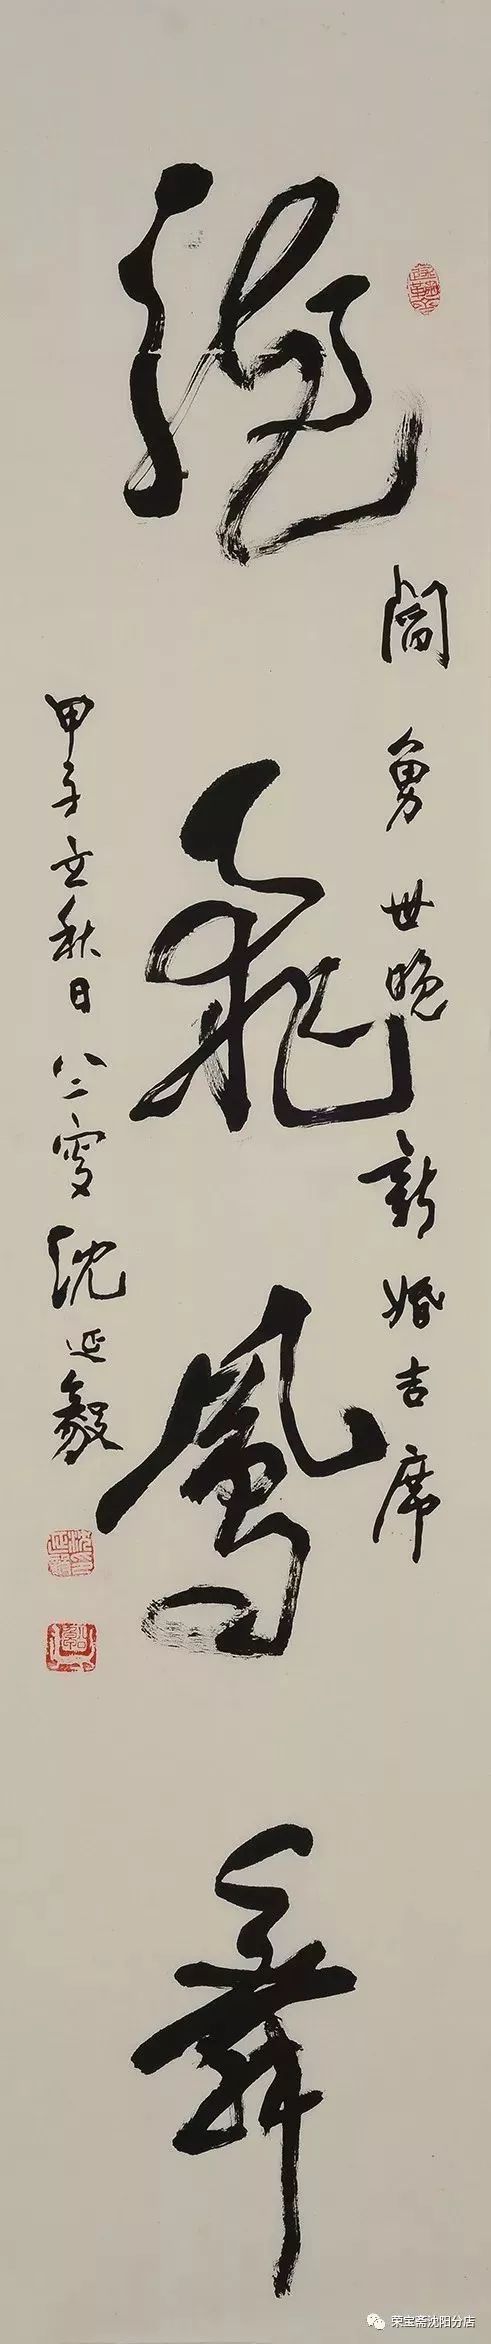 閻勇世晚新婚吉席
龍飛鳳舞
甲子立秋日八二叟沈延毅
荣宝斋沈阳分店